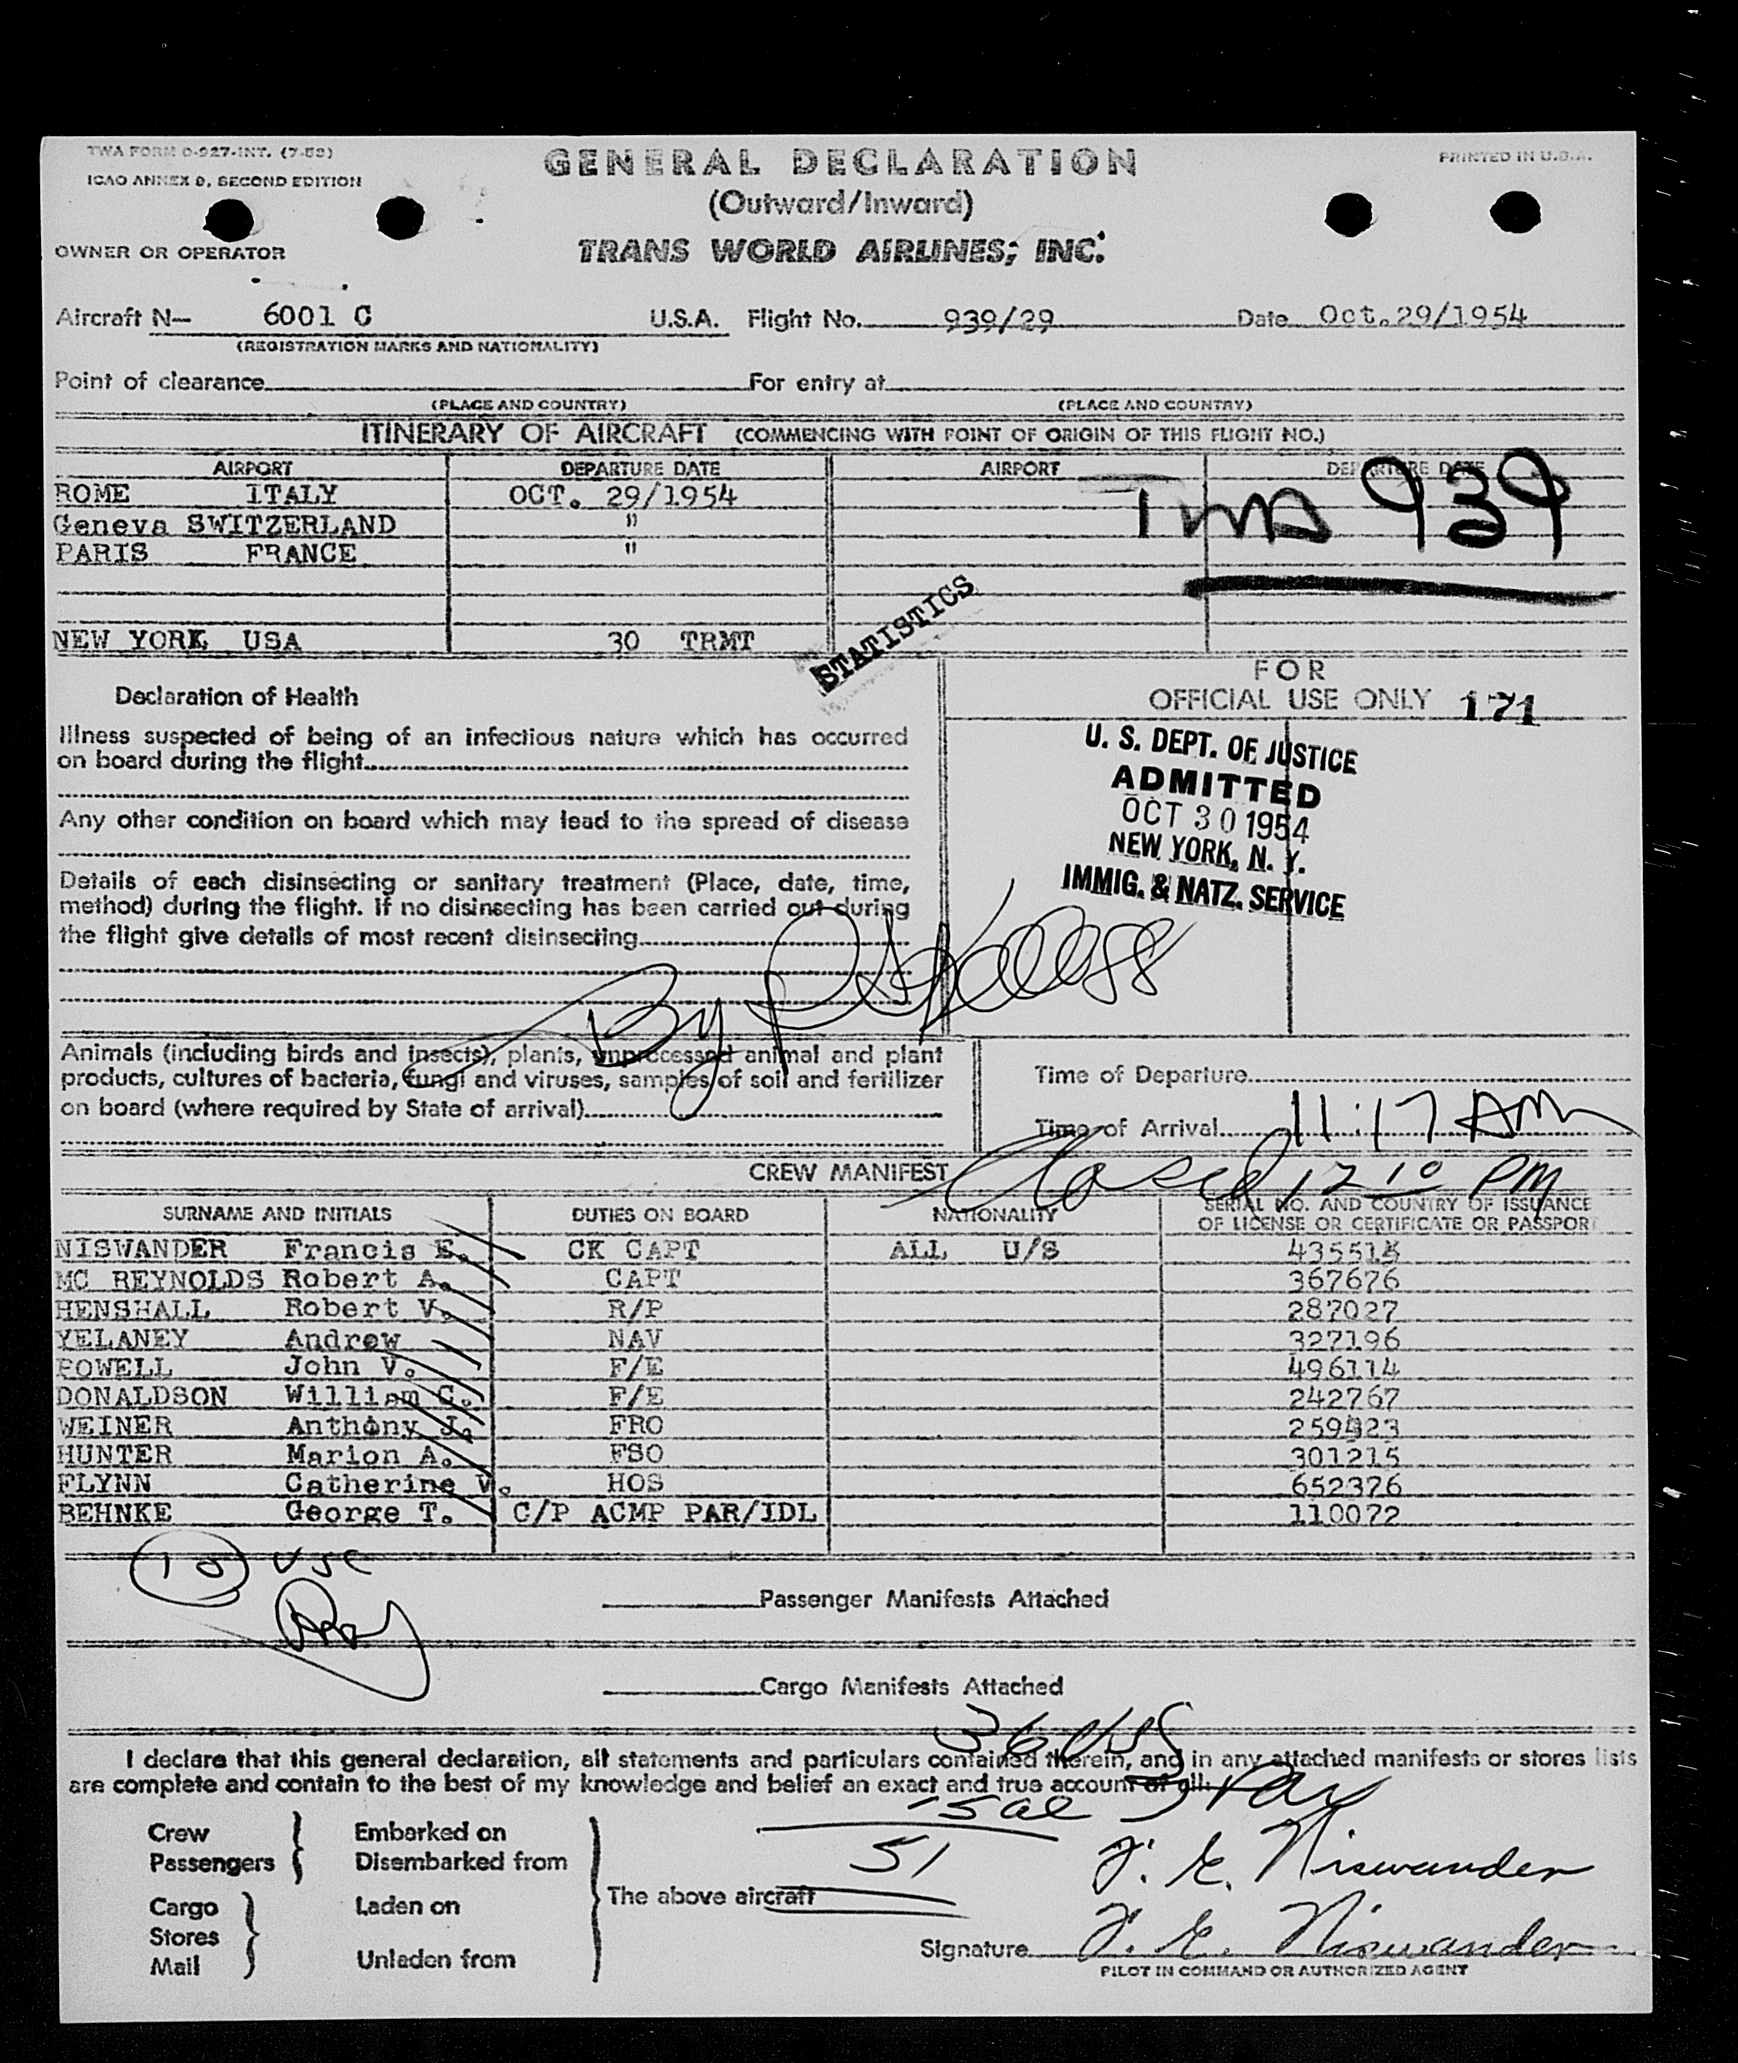 TWA FORM O-927-INT. (7-53)
ICAO ANNEX 9, SECOND EDITION
PRINTED IN U.S.A.
GENERAL DECLARATION
(Outward/Inward)
OWNER OR OPERATOR TRANS WORLD AIRLINES, INC.
Aircraft N— 6001 C U.S.A. Flight No. 939/29 Date Oct.29/1954
(REGISTRATION MARKS AND NATIONALITY)
Point of clearance For entry at
(PLACE AND COUNTRY) (PLACE AND COUNTRY)
ITINERARY OF AIRCRAFT (COMMENCING WITH POINT OF ORIGIN OF THIS FLIGHT NO.)
AIRPORT DEPARTURE DATE AIRPORT DEPARTURE DATE
ROME ITALY OCT. 29/1954
Geneva SWITZERLAND "
PARIS FRANCE "
939
NEW YORK USA 30 TRMT
STATISTICS
FOR
OFFICIAL USE ONLY 171
Declaration of Health
Illness suspected of being of an infectious nature which has occurred
on board during the flight
Any other condition on board which may lead to the spread of disease
Details of each disinsecting or sanitary treatment (Place, date, time,
method) during the flight. If no disinsecting has been carried out during
the flight give details of most recent disinsecting
U. S. DEPT. OF JUSTICE
ADMITTED
OCT 30 1954
NEW YORK, N. Y.
IMMIG. & NATZ. SERVICE
By
Animals (including birds and insects), plants, unprocessed animal and plant
products, cultures of bacteria, fungi and viruses, samples of soil and fertilizer
on board (where required by State of arrival)
Time of Departure
Time of Arrival 11:17 AM
Closed 12 10 PM
CREW MANIFEST
SURNAME AND INITIALS DUTIES ON BOARD NATIONALITY SERIAL NO. AND COUNTRY OF ISSUANCE
OF LICENSE OR CERTIFICATE OR PASSPORT
NISWANDER Francis E. CK CAPT ALL U/S 435515
MC REYNOLDS Robert A. CAPT 367676
HENSHALL Robert V. R/P 287027
YELANEY Andrew NAV 327196
POWELL John V. F/E 496114
DONALDSON William C. F/E 242767
WEINER Anthony J. FRO 259423
HUNTER Marion A. FSO 301215
FLYNN Catherine V. HOS 652376
BEHNKE George T. C/P ACMP PAR/IDL 110072
10 USC
Passenger Manifests Attached
Cargo Manifests Attached
36 USS
I declare that this general declaration, all statements and particulars contained therein, and in any attached manifests or stores lists
are complete and contain to the best of my knowledge and belief an exact and true account of all:
15 al
51
Crew
Passengers
Embarked on
Disembarked from
Cargo
Stores
Mail
Laden on
Unladen from
The above aircraft
F. E. Niswander
Signature F. E. Niswander
PILOT IN COMMAND OR AUTHORIZED AGENT